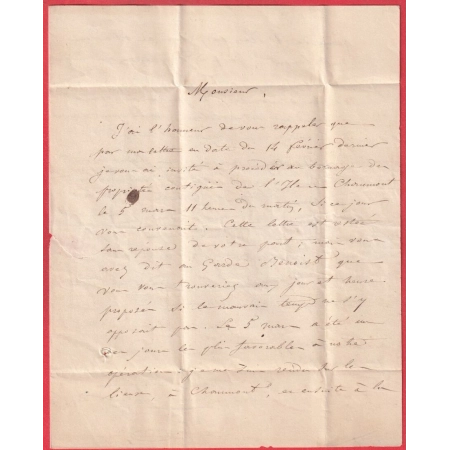 Monsieur,
J'ai l'honneur de vous rappeler que
par ma lettre en date du 14 février dernier
je vous ai invité à procéder au bornage des
propriétés contigües de l' Chaumont
le 5 mars 11 heures du matin, si ce jour
vous convenait. Cette lettre est restée
sans réponse de votre part; mais vous
avez dit au Garde Benoist que
vous vous trouveriez aux jour et heure
proposés si le mauvais temps ne s'y
opposait pas. Le 5 mars a été un
des jours les plus favorables à notre
opération; je me suis rendu sur les
lieux à Chaumont, et ensuite à